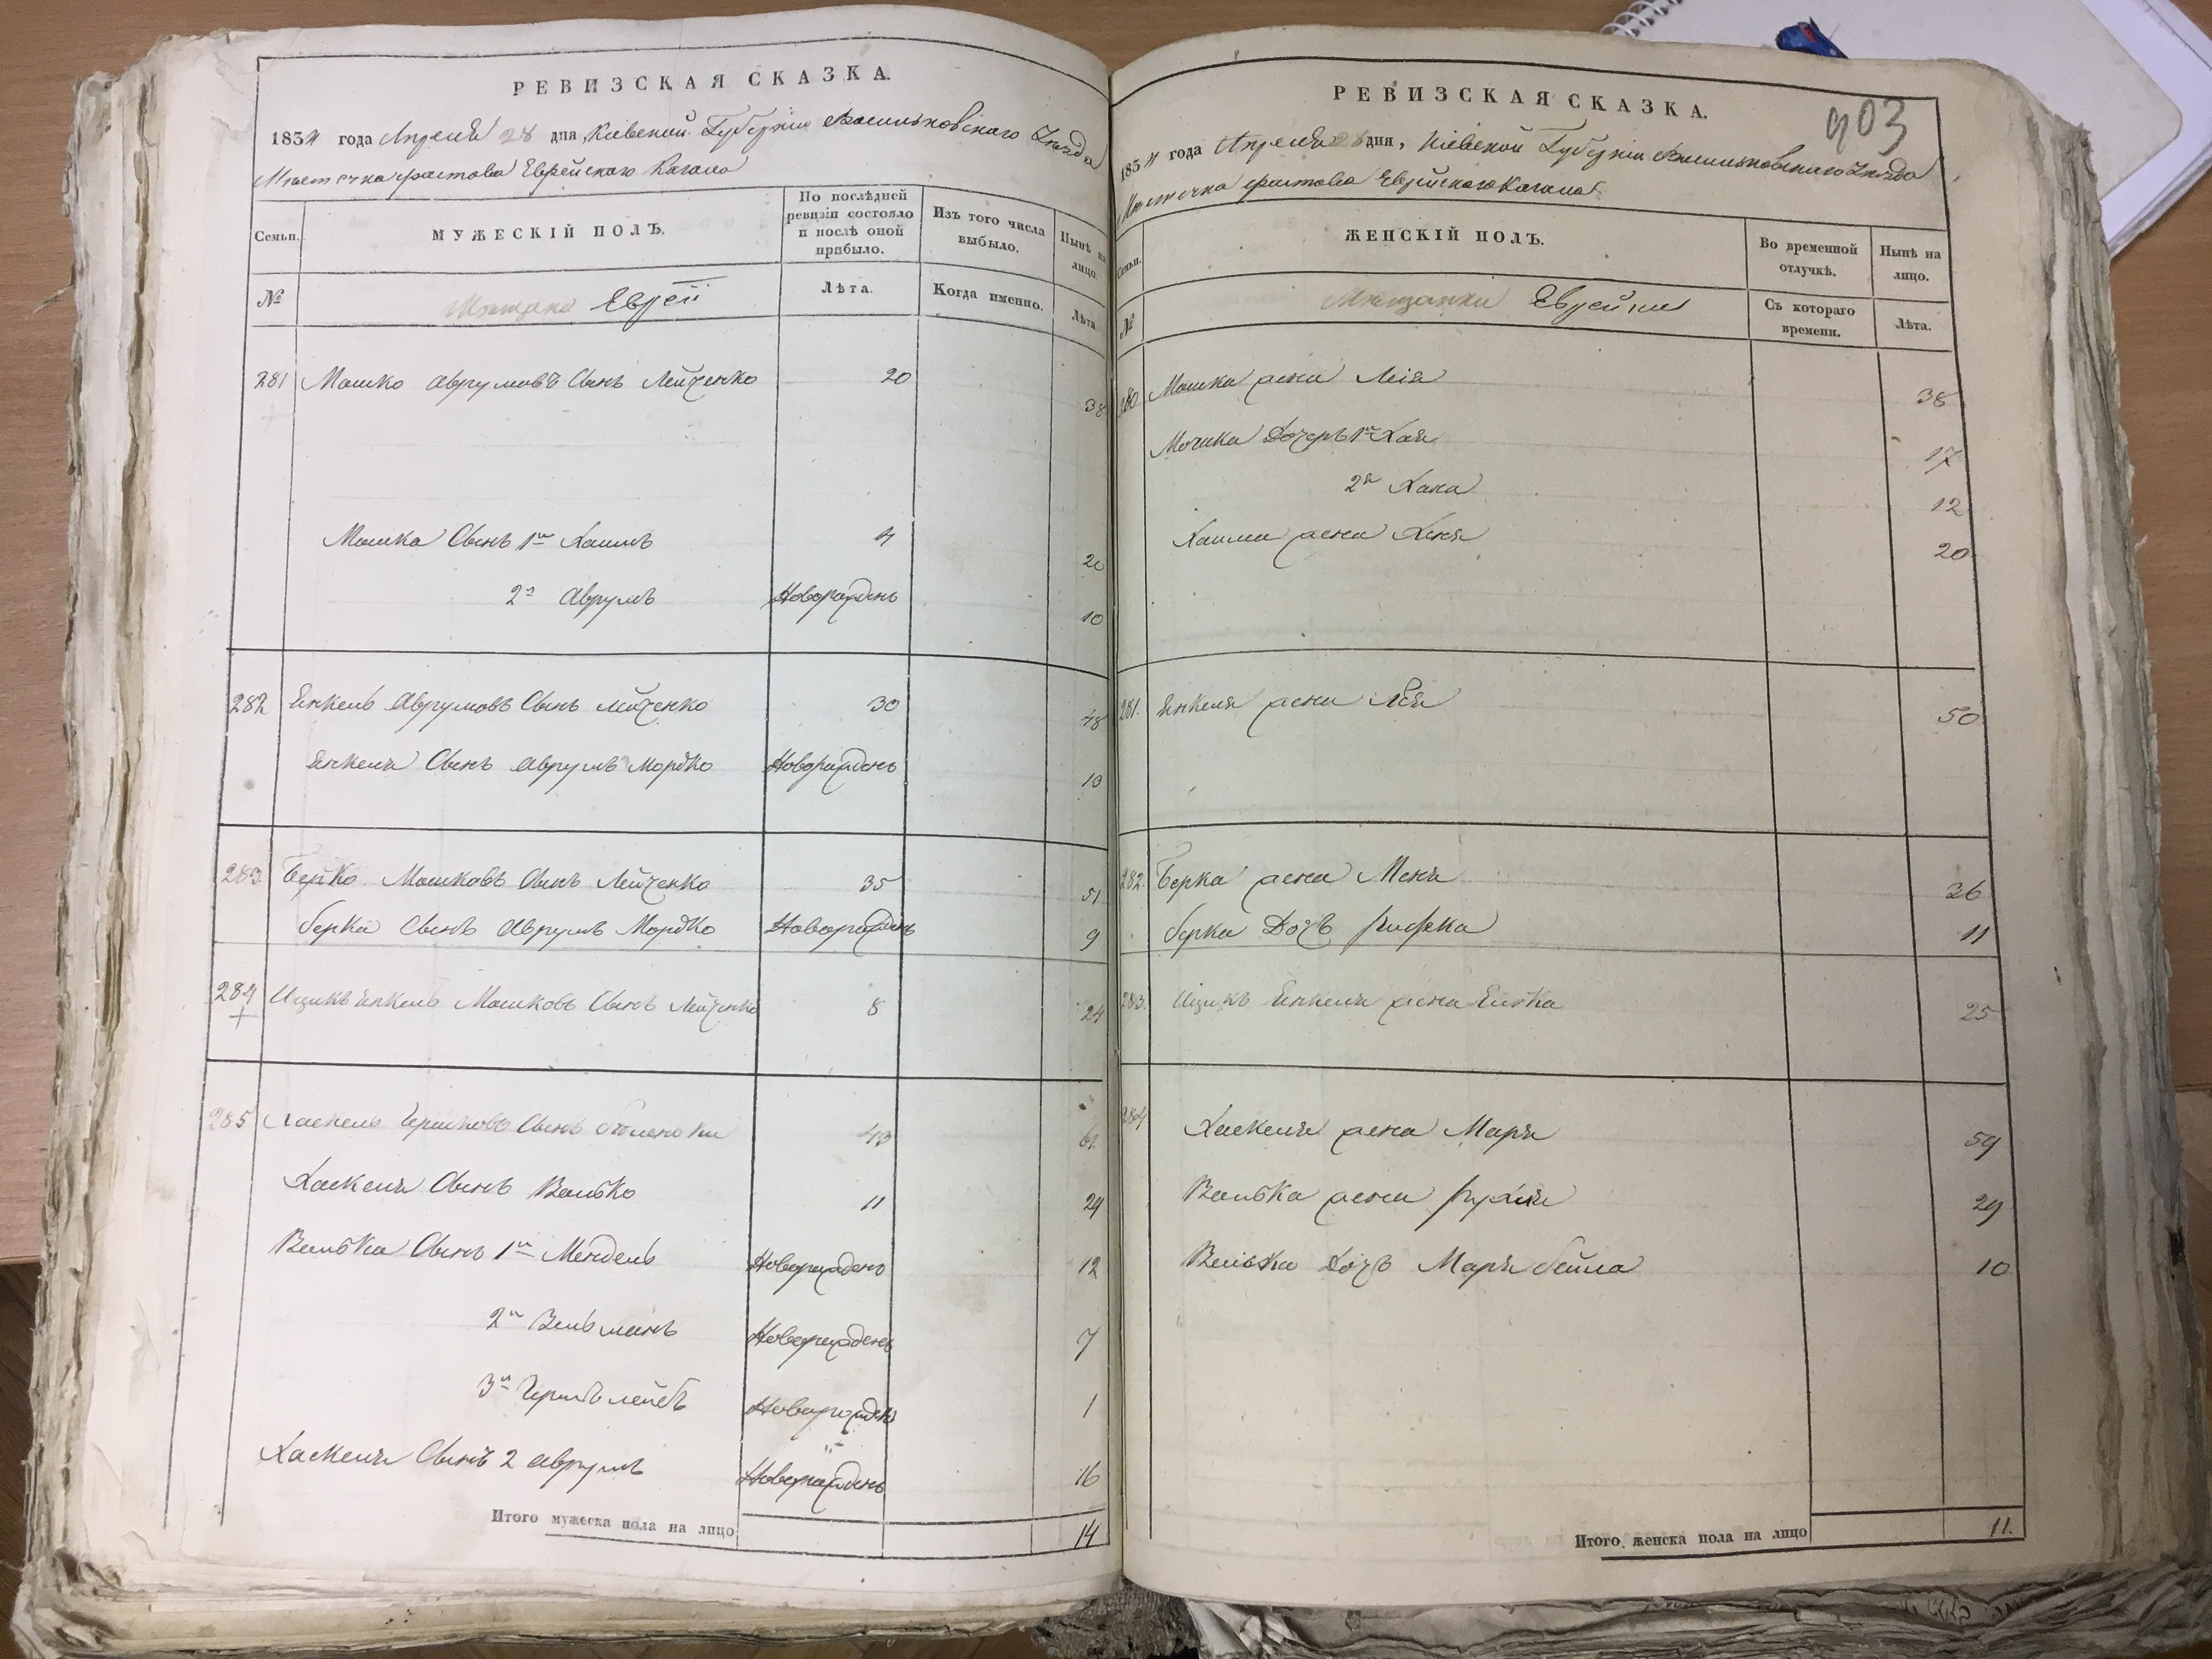 РЕВИЗСКАЯ СКАЗКА.
1834 года Апреля 28 дня, Кіевской Губерніи Васильковскаго Уѣзда
Мѣстечка Фастова Еврейского Кагала
Семьи.
МУЖЕСКІЙ ПОЛЪ.
По послѣдней ревизіи состояло и послѣ оной прибыло.
Изъ того числа выбыло.
Нынѣ на лицо.
№
Мѣщане Евреи
Лѣта.
Когда именно.
Лѣта
281 Мошко Аврумовъ Сынъ Лейченко 20 38
Мошка Сынъ 1й Хаимъ 4 20
2й Аврумъ Новорожденъ 10
282 Янкель Аврумовъ Сынъ Лейченко 30 48
Янкеля Сынъ Аврумъ Мордко Новорожденъ 10
283 Берко Мошковъ Сынъ Лейченко 35 51
Берка Сынъ Аврумъ Мордко Новорожденъ 9
284 Ицикъ Янкель Мошковъ Сынъ Лейченко 8 24
285 Хаскель Гершковъ Сынъ 43 61.
Хаскеля Сынъ Волько 11 29
Волька Сынъ 1й Мендель Новорожденъ 12
2й Зельманъ Новорожденъ 7
3й Гершъ лейбъ Новорожденъ 1
Хаскеля Сынъ 2 аврумъ Новорожденъ 16
Итого мужеска пола на лицо 14
РЕВИЗСКАЯ СКАЗКА.
903
1834 года Апреля 28 дня, Кіевской Губерніи Васильковскаго Уѣзда
Мѣстечка Фастова Еврейского Кагала
Семьи.
ЖЕНСКІЙ ПОЛЪ.
Во временной отлучкѣ.
Нынѣ на лицо.
№
Мѣщанки Еврейки
Съ котораго времени.
Лѣта.
280 Мошка жена Лея 38
Мошка Дочерь 1я Хая 17
2я Хана 12
Хаима жена Хеня 20
281. Янкеля жена Лея 50
282. Берка жена Меня 36
Берка Дочь Рифка 11
283. Ицикъ Янкеля жена Ейтка 25
284 Хаскеля жена Маря 59
Волька жена Рухля 29
Волька Дочь Маря бейла 10
Итого женска пола на лицо 11.